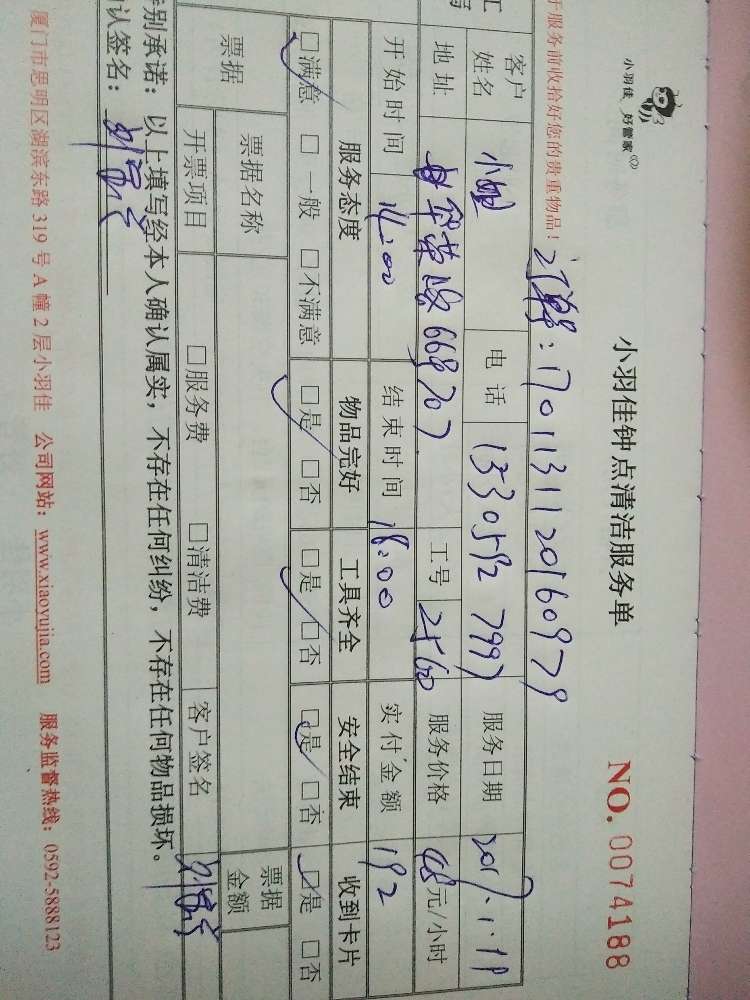 小羽佳 好管家
小羽佳钟点清洁服务单
NO. 0074188
于服务前收拾好您的贵重物品!
订单号: 1701131120160979
客户姓名 电话 服务日期
地址 工号 2560 服务价格 48元/小时
开始时间 14:00 结束时间 18:00 实付金额 192
服务态度 物品完好 工具齐全 安全结束 收到卡片
□满意 □一般 □不满意 □是 □否 □是 □否 □是 □否 □是 □否
票据 票据名称 票据金额
开票项目 □服务费 □清洁费 客户签名
别承诺: 以上填写经本人确认属实,不存在任何纠纷,不存在任何物品损坏。
认签名:
厦门市思明区湖滨东路 319 号 A 幢 2 层小羽佳 公司网站: www.xiaoyujia.com 服务监督热线: 0592-5888123